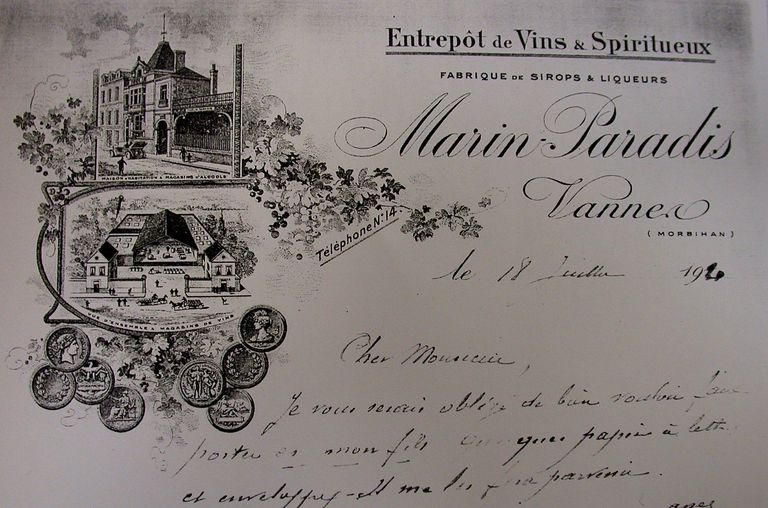 Entrepôt de Vins & Spiritueux
FABRIQUE DE SIROPS & LIQUEURS
Marin-Paradis
Vannes
(MORBIHAN)
MAISON D'HABITATION & MAGASINS D'ALCOOLS
Téléphone N° 14
VUE D'ENSEMBLE & MAGASINS DE VINS
le 18 Juillet 192
Cher Monsieur,
Je vous serais obligé de bien vouloir faire
porter à mon fils quelques papier à lettre
et enveloppes - Il me les fera parvenir.